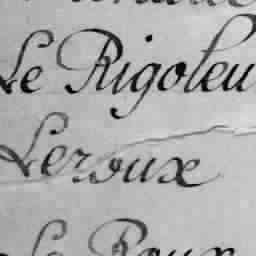 Le Rigoleu
Leroux
Le Roux